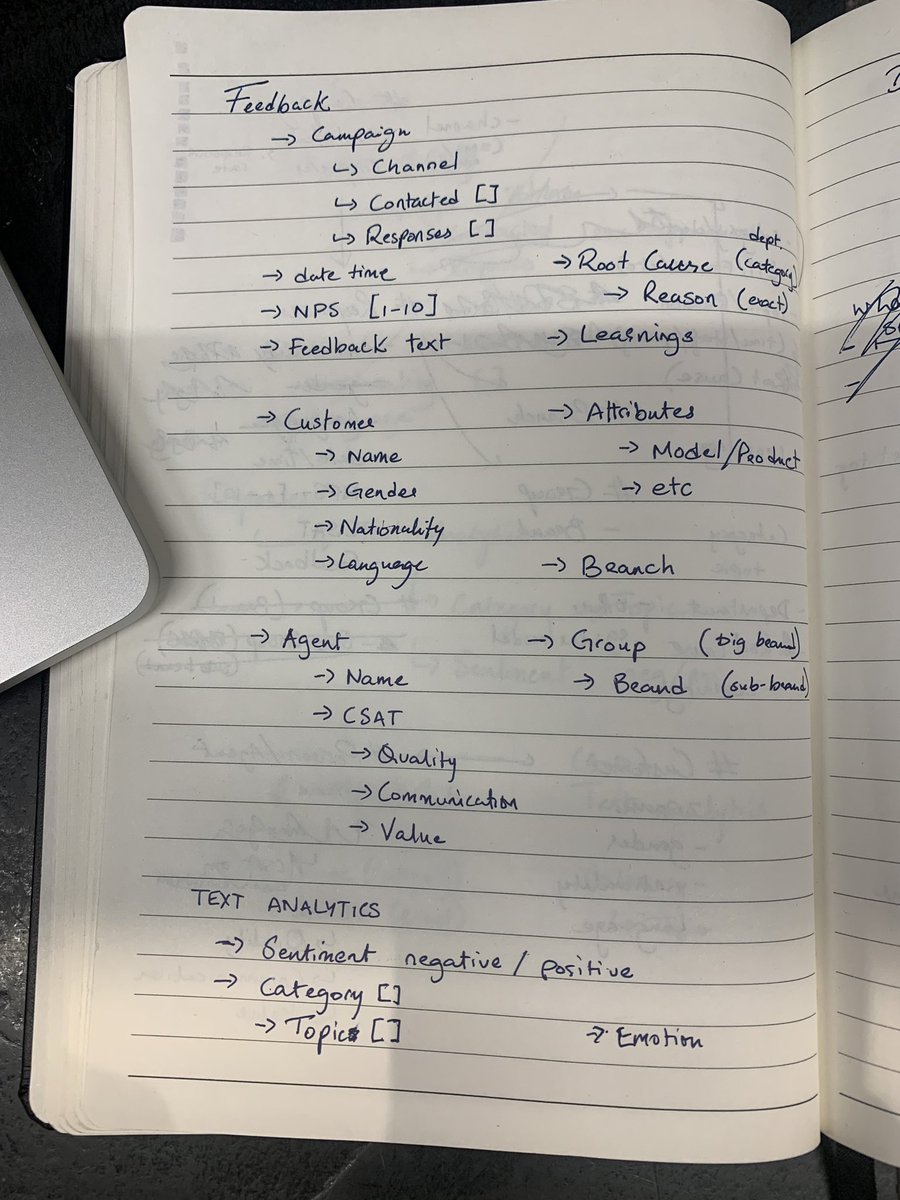 Feedback
→ Campaign
↳ Channel
↳ Contacted []
↳ Responses []
→ date time
→ NPS [1-10]
→ Feedback text
dept.
→ Root Cause (category)
→ Reason (exact)
→ Learnings
→ Customer
→ Name
→ Gender
→ Nationality
→ Language
→ Attributes
→ Model/Product
→ etc
→ Branch
→ Agent
→ Name
→ CSAT
→ Quality
→ Communication
→ Value
→ Group (big brand)
→ Brand (sub-brand)
TEXT ANALYTICS
→ Sentiment negative / positive
→ Category []
→ Topic []
→ Emotion